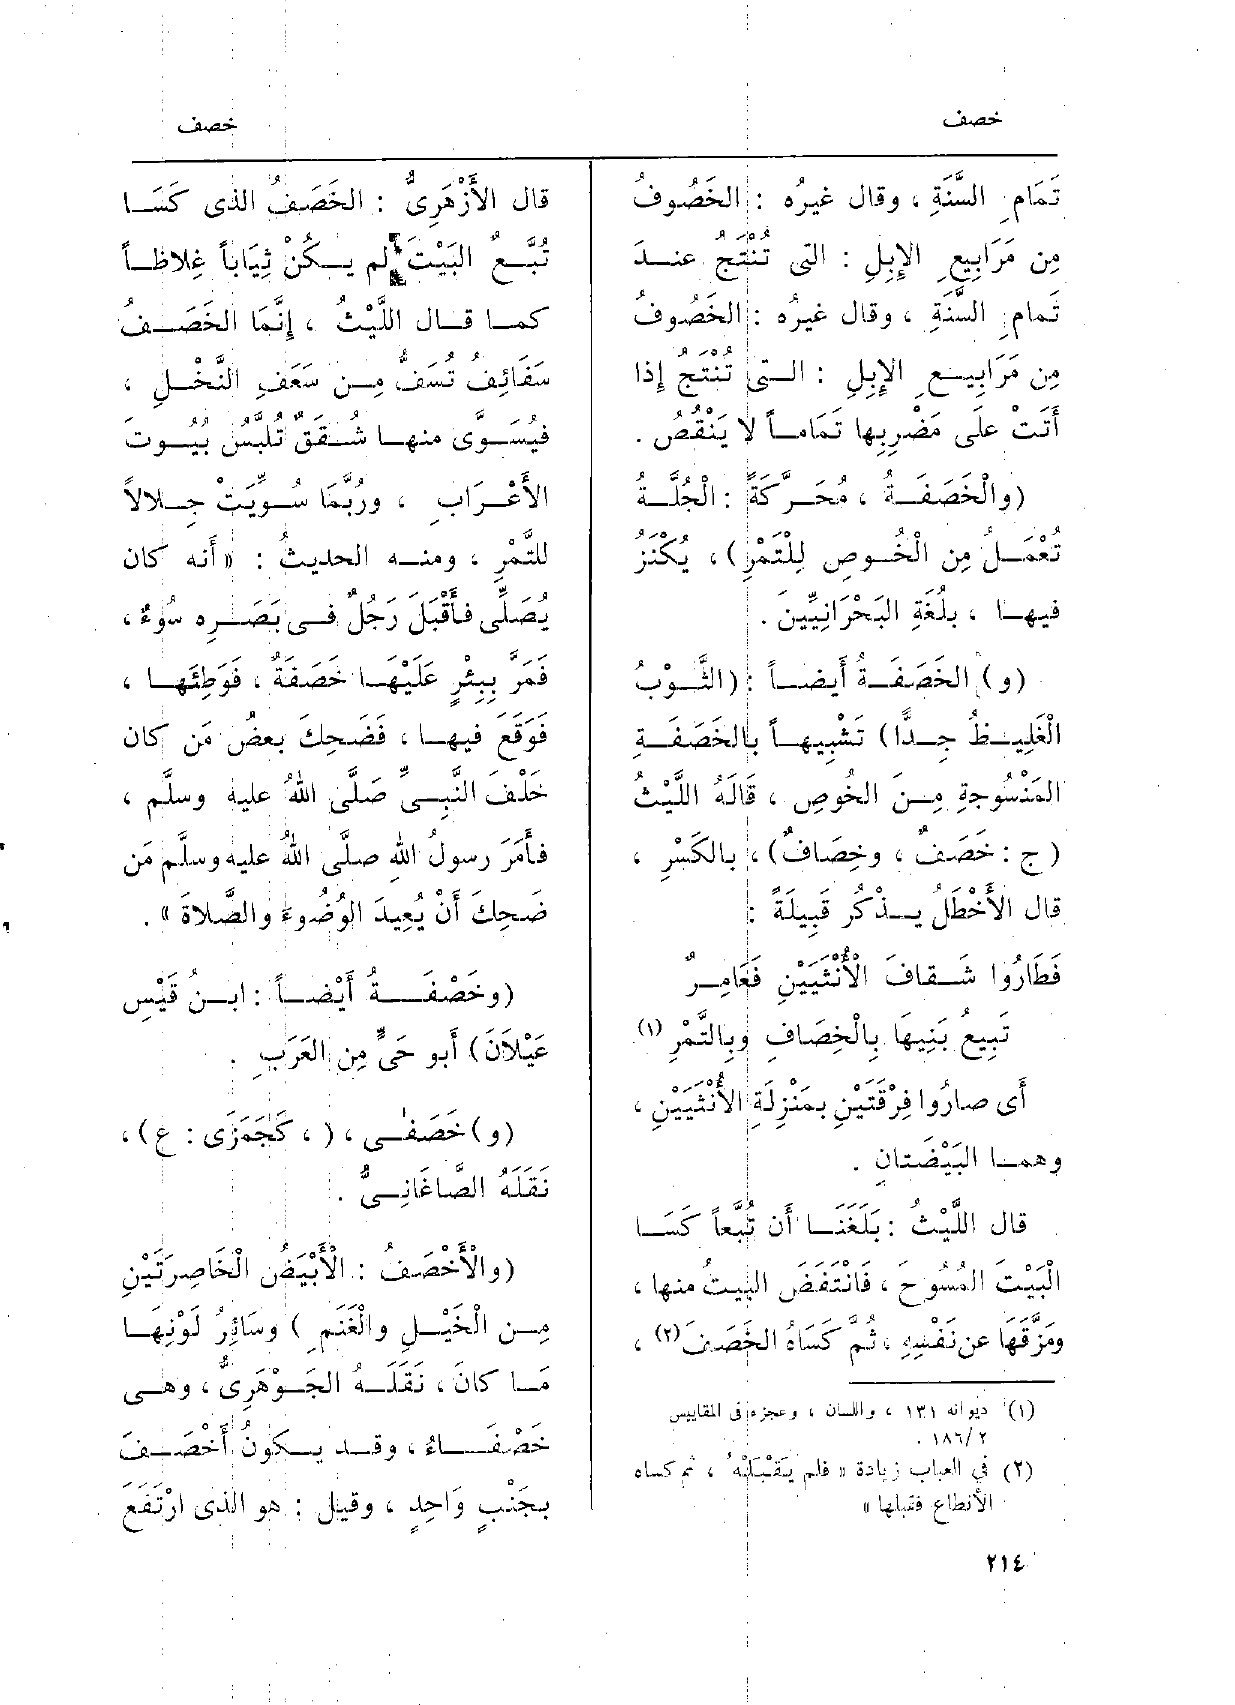 خصف
خصف
تَمَامِ السَّنَةِ ، وقال غيرُه : الخَصُوفُ
مِن مَرَابِيعِ الإِبِلِ : التى تُنْتَجُ عنـد
تَمامِ السَّنَةِ ، وقال غيرُه : الخَصُوفُ
مِن مَرَابِيـعِ الإِبِلِ : الـتى تُنْتَجُ إِذا
أَتَتْ علَى مَضْرِبِها تَمَامـاً لا يَنْقُصُ .
(والْخَصَفَـةُ ، مُحَـرَّكَةً : الْجُلَّـةُ
تُعْمَـلُ مِن الْخُـوصِ لِلْتَمْرِ) ، يُكْنَزُ
فيهـا ، بلُغَةِ البَحْرَانِيِّينَ .
(و) الخَصَفَـةُ أَيضـاً : (الثَّـوْبُ
الْغَلِيـظُ جِـدًّا) تَشْبِيهـاً بالخَصَفَـةِ
المَنْسُوجةِ مِـنَ الخُوصِ ، قَالَهُ اللَّيْثُ
( ج : خَصَفٌ ، وخِصَافٌ) ، بالكَسْرِ ،
قال الأَخْطَلُ يـذكُر قَبِيلَةً :
فَطَارُوا شَـقافَ الأُنْثَيَيْنِ فَعَامِـرٌ
تَبِيعُ بَنِيهَا بِالْخِصَافِ وبِالتَّمْرِ (١)
أَى صارُوا فِرْقَتَيْنِ بمَنْزِلَةِ الأُنْثَيَيْنِ ،
وهمـا البَيْضَتانِ .
قال اللَّيْثُ : بَلَغَنَـا أَن تُبَّعاً كَسَـا
الْبَيْتَ المُسُوحَ ، فَانْتَفَضَ البيتُ منها ،
ومَزَّقَهَا عن نَفْسِهِ ، ثُمَّ كَسَاهُ الخَصَفَ (٢) ،
(١) ديوانه ١٣١ ، واللسان ، وعجزه فى المقاييس
٢/ ١٨٦ .
(٢) في العباب زيادة « فلم يَقْبَلْهُ ، ثم كساه
الأنطاع فقبلها »
٢١٤
قال الأَزْهَرِىُّ : الخَصَفُ الذى كَسَـا
تُبَّـعٌ البَيْتَ لم يـكُنْ ثِيَاباً غِلاظـاً
كمـا قـال اللَّيْثُ ، إِنَّمَا الخَصَـفُ
سَفَائِفُ تُسَفُّ مِـن سَعَفِ النَّخْـلِ ،
فيُسَـوَّى منهـا شُـقَقٌ تُلَبَّسُ بُيُـوتَ
الأَعْـرَابِ ، ورُبَّمَا سُـوِّيَتْ جِـلالاً
للتَّمْرِ ، ومنـه الحديثُ : « أنه كان
يُصَلِّى فأَقْبَلَ رَجُلٌ فـى بَصَـرِه سُوءٌ ،
فَمَرَّ بِبِئْرٍ عَلَيْهَـا خَصَفَةٌ ، فَوَطِئَهـا ،
فَوَقَعَ فيهـا ، فَضَحِكَ بعضُ مَن كان
خَلْفَ النَّبِـىِّ صَلَّى اللهُ عليه وسلَّم ،
فأَمَرَ رسولُ اللهِ صلَّى اللهُ عليه وسلَّم مَن
ضَحِكَ أَنْ يُعِيدَ الوُضُوءَ والصَّلاةَ » .
(وخَصْفَـةُ أَيْضـاً : ابـنُ قَيْسِ
عَيْلاَنَ) أَبو حَىٍّ مِن العَرَبِ .
(و) خَصَفـى ، ( ، كَجَمَزَى : ع) ،
نَقَلَهُ الصَّاغَانِـىُّ .
(والأَخْصَفُ : الأَبْيَضُ الْخَاصِرَتَيْنِ
مِـن الْخَيْـلِ والْغَنَمِ ) وسَائِرُ لَوْنِهَـا
مَـا كانَ ، نَقَلَـهُ الجَـوْهَرِىُّ ، وهـى
خَصْفَـاءُ ، وقـد يـكونُ أَخْصَـفَ
بجَنْبٍ وَاحِدٍ ، وقيل : هو الذى ارْتَفَعَ